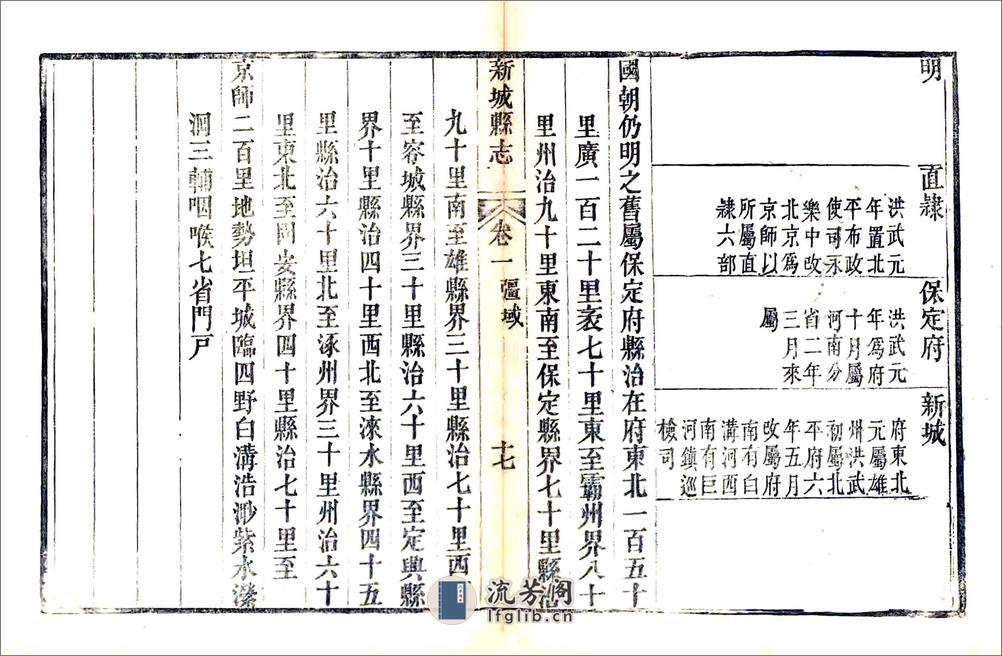 明
直隸
洪武元
年置北
平布政
使司永
樂中改
北京爲
京師以
所屬直
隸六部
保定府
洪武元
年爲府
十月屬
河南分
省二年
三月來
屬
新城
府東北
元屬雄
州洪武
初屬北
平府六
年五月
改屬府
南有白
溝河西
南有巨
河鎮巡
檢司
國朝仍明之舊屬保定府縣治在府東北一百五十
里廣一百二十里袤七十里東至霸州界八十
里州治九十里東南至保定縣界七十里縣治
新城縣志
卷一
疆域
十七
九十里南至雄縣界三十里縣治七十里西南
至容城縣界三十里縣治六十里西至定興縣
界十里縣治四十里西北至淶水縣界四十五
里縣治六十里北至涿州界三十里州治六十
里東北至固安縣界四十里縣治七十里至
京師二百里地勢坦平城臨四野白溝浩渺紫水瀠
洄三輔咽喉七省門戸
流芳阁
lfglib.cn